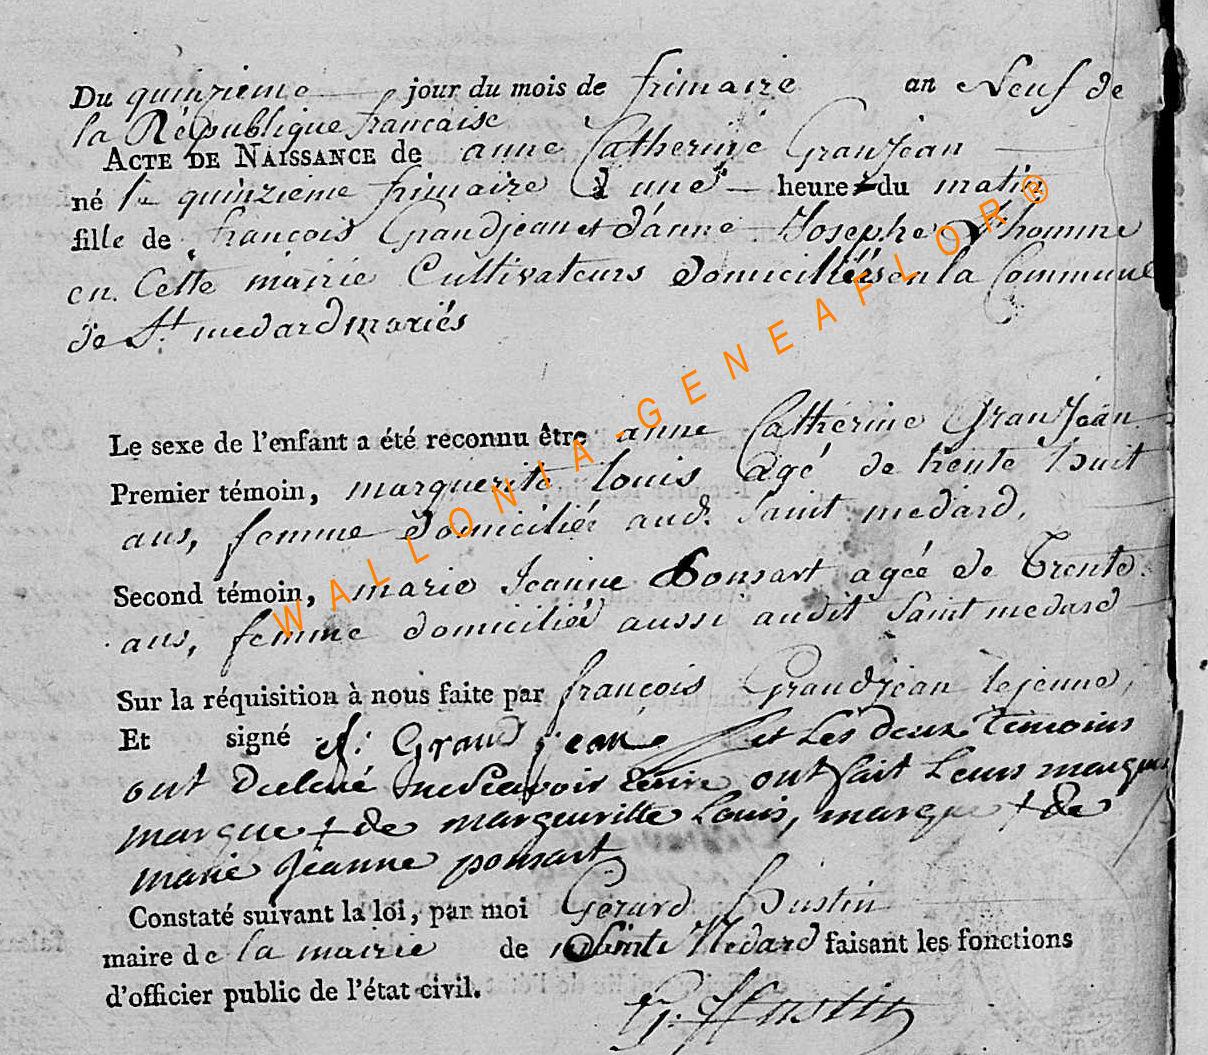 Du quinzieme jour du mois de frimaire an Neuf de
la République francaise
ACTE DE NAISSANCE de anne Catherine GranJean
né le quinzieme frimaire à une heure du matin
fille de francois Grandjean et d'anne Josephe Lhomme
en Cette mairie Cultivateurs domiciliés en la Commune
de St. medard mariés
Le sexe de l'enfant a été reconnu être anne Catherine GranJean
Premier témoin, marguerite Louis agé de trente huit
ans, femme domiciliée aud. Saint medard,
Second témoin, marie Jeanne Ponsart agée de Trente
ans, femme domiciliée aussi audit Saint medard
Sur la réquisition à nous faite par françois Grandjean lejeune,
Et signé f: Grandjean et les deux temoins
ont declaré ne scavoir écrire ont fait leurs marques
marque + de margueritte Louis, marque + de
marie jeanne ponsart
Constaté suivant la loi, par moi Gérard Hustin
maire de la mairie de Sainte Medard faisant les fonctions
d'officier public de l'état civil.
G. Hustin
WALLONIA-GENEAFLOR®